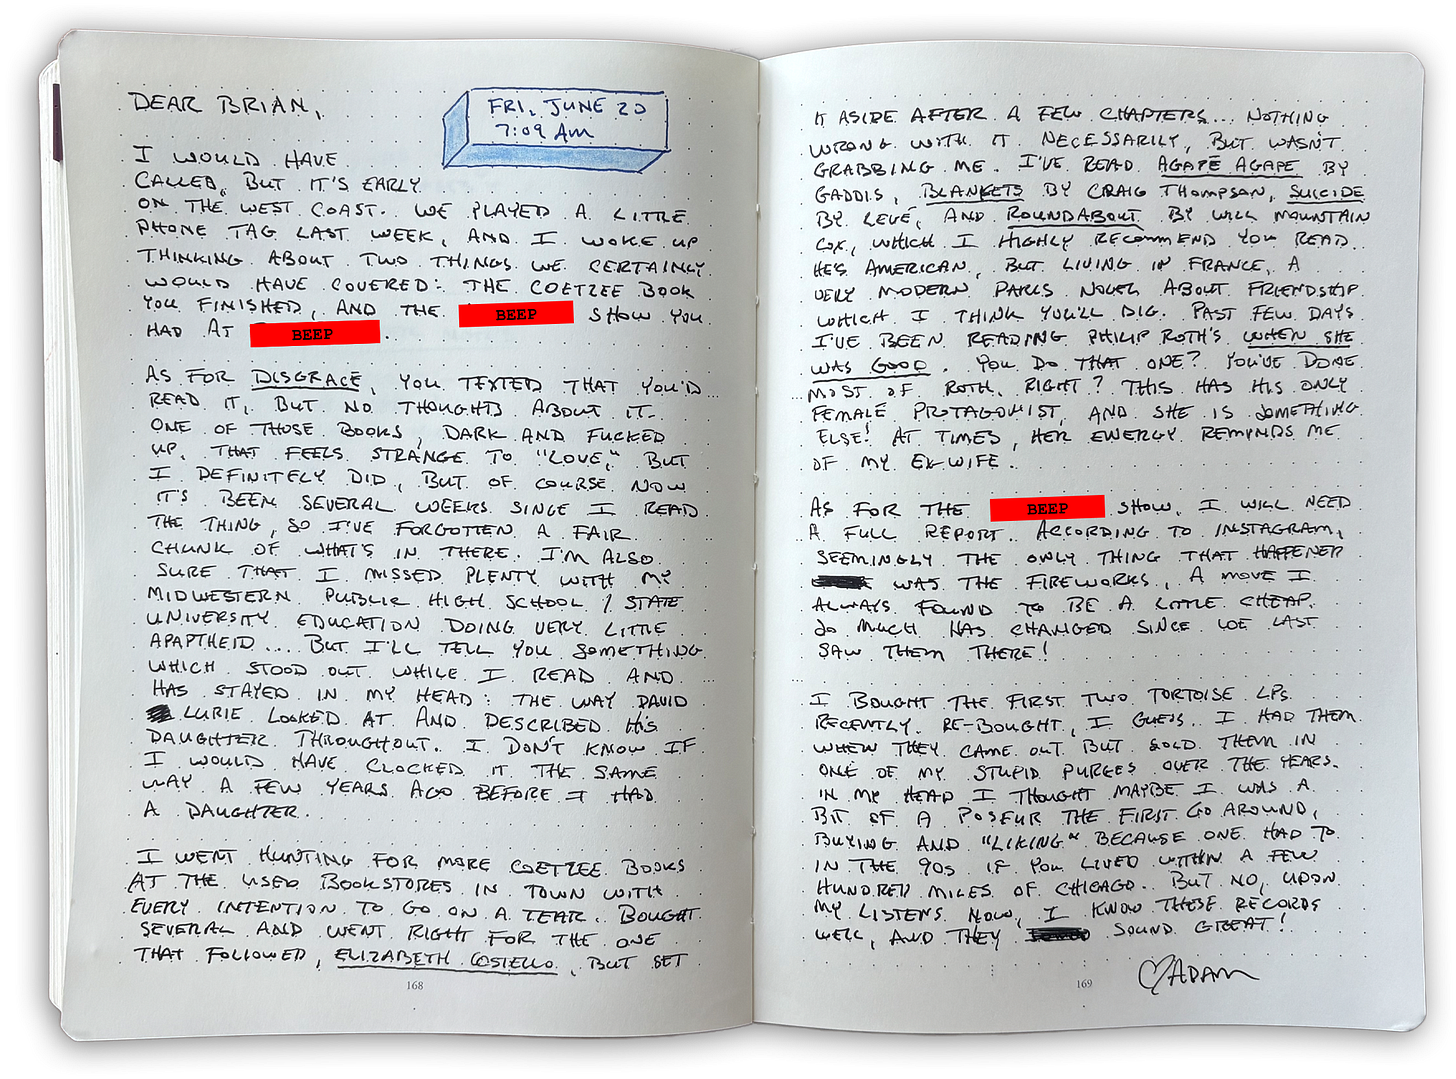 DEAR BRIAN,
FRI, JUNE 20
7:09 AM
I WOULD HAVE
CALLED, BUT IT'S EARLY
ON THE WEST COAST. WE PLAYED A LITTLE
PHONE TAG LAST WEEK, AND I WOKE UP
THINKING ABOUT TWO THINGS WE CERTAINLY
WOULD HAVE COVERED: THE COETZEE BOOK
YOU FINISHED, AND THE BEEP SHOW YOU
HAD AT BEEP.
AS FOR DISGRACE, YOU TEXTED THAT YOU'D
READ IT, BUT NO THOUGHTS ABOUT IT.
ONE OF THOSE BOOKS, DARK AND FUCKED
UP, THAT FEELS STRANGE TO "LOVE," BUT
I DEFINITELY DID, BUT OF COURSE NOW
IT'S BEEN SEVERAL WEEKS SINCE I READ
THE THING, SO I'VE FORGOTTEN A FAIR
CHUNK OF WHAT'S IN THERE. I'M ALSO
SURE THAT I MISSED PLENTY WITH MY
MIDWESTERN PUBLIC HIGH SCHOOL / STATE
UNIVERSITY EDUCATION DOING VERY LITTLE
APARTHEID.... BUT I'LL TELL YOU SOMETHING
WHICH STOOD OUT WHILE I READ AND
HAS STAYED IN MY HEAD: THE WAY DAVID
LURIE LOOKED AT AND DESCRIBED HIS
DAUGHTER THROUGHOUT. I DON'T KNOW IF
I WOULD HAVE CLOCKED IT THE SAME
WAY A FEW YEARS AGO BEFORE I HAD
A DAUGHTER.
I WENT HUNTING FOR MORE COETZEE BOOKS
AT THE USED BOOKSTORES IN TOWN WITH
EVERY INTENTION TO GO ON A TEAR. BOUGHT
SEVERAL AND WENT RIGHT FOR THE ONE
THAT FOLLOWED, ELIZABETH COSTELLO, BUT SET
168
IT ASIDE AFTER A FEW CHAPTERS... NOTHING
WRONG WITH IT NECESSARILY, BUT WASN'T
GRABBING ME. I'VE READ AGAPĒ AGAPE BY
GADDIS, BLANKETS BY CRAIG THOMPSON, SUICIDE
BY LEVÉ, AND ROUNDABOUT BY WILL MOUNTAIN
COX, WHICH I HIGHLY RECOMMEND YOU READ.
HE'S AMERICAN, BUT LIVING IN FRANCE, A
VERY MODERN PARIS NOVEL ABOUT FRIENDSHIP
WHICH I THINK YOU'LL DIG. PAST FEW DAYS
I'VE BEEN READING PHILIP ROTH'S WHEN SHE
WAS GOOD. YOU DO THAT ONE? YOU'VE DONE
MOST OF ROTH, RIGHT? THIS HAS HIS ONLY
FEMALE PROTAGONIST, AND SHE IS SOMETHING
ELSE! AT TIMES, HER ENERGY REMINDS ME
OF MY EX-WIFE.
AS FOR THE BEEP SHOW, I WILL NEED
A FULL REPORT. ACCORDING TO INSTAGRAM,
SEEMINGLY THE ONLY THING THAT HAPPENED
WAS THE FIREWORKS, A MOVE I
ALWAYS FOUND TO BE A LITTLE CHEAP.
SO MUCH HAS CHANGED SINCE WE LAST
SAW THEM THERE!
I BOUGHT THE FIRST TWO TORTOISE LPs
RECENTLY. RE-BOUGHT, I GUESS. I HAD THEM
WHEN THEY CAME OUT BUT SOLD THEM IN
ONE OF MY STUPID PURGES OVER THE YEARS.
IN MY HEAD I THOUGHT MAYBE I WAS A
BIT OF A POSEUR THE FIRST GO AROUND,
BUYING AND "LIKING" BECAUSE ONE HAD TO
IN THE 90s IF YOU LIVED WITHIN A FEW
HUNDRED MILES OF CHICAGO. BUT NO, UPON
MY LISTENS NOW, I KNOW THESE RECORDS
WELL, AND THEY SOUND GREAT!
♡ADAM
169